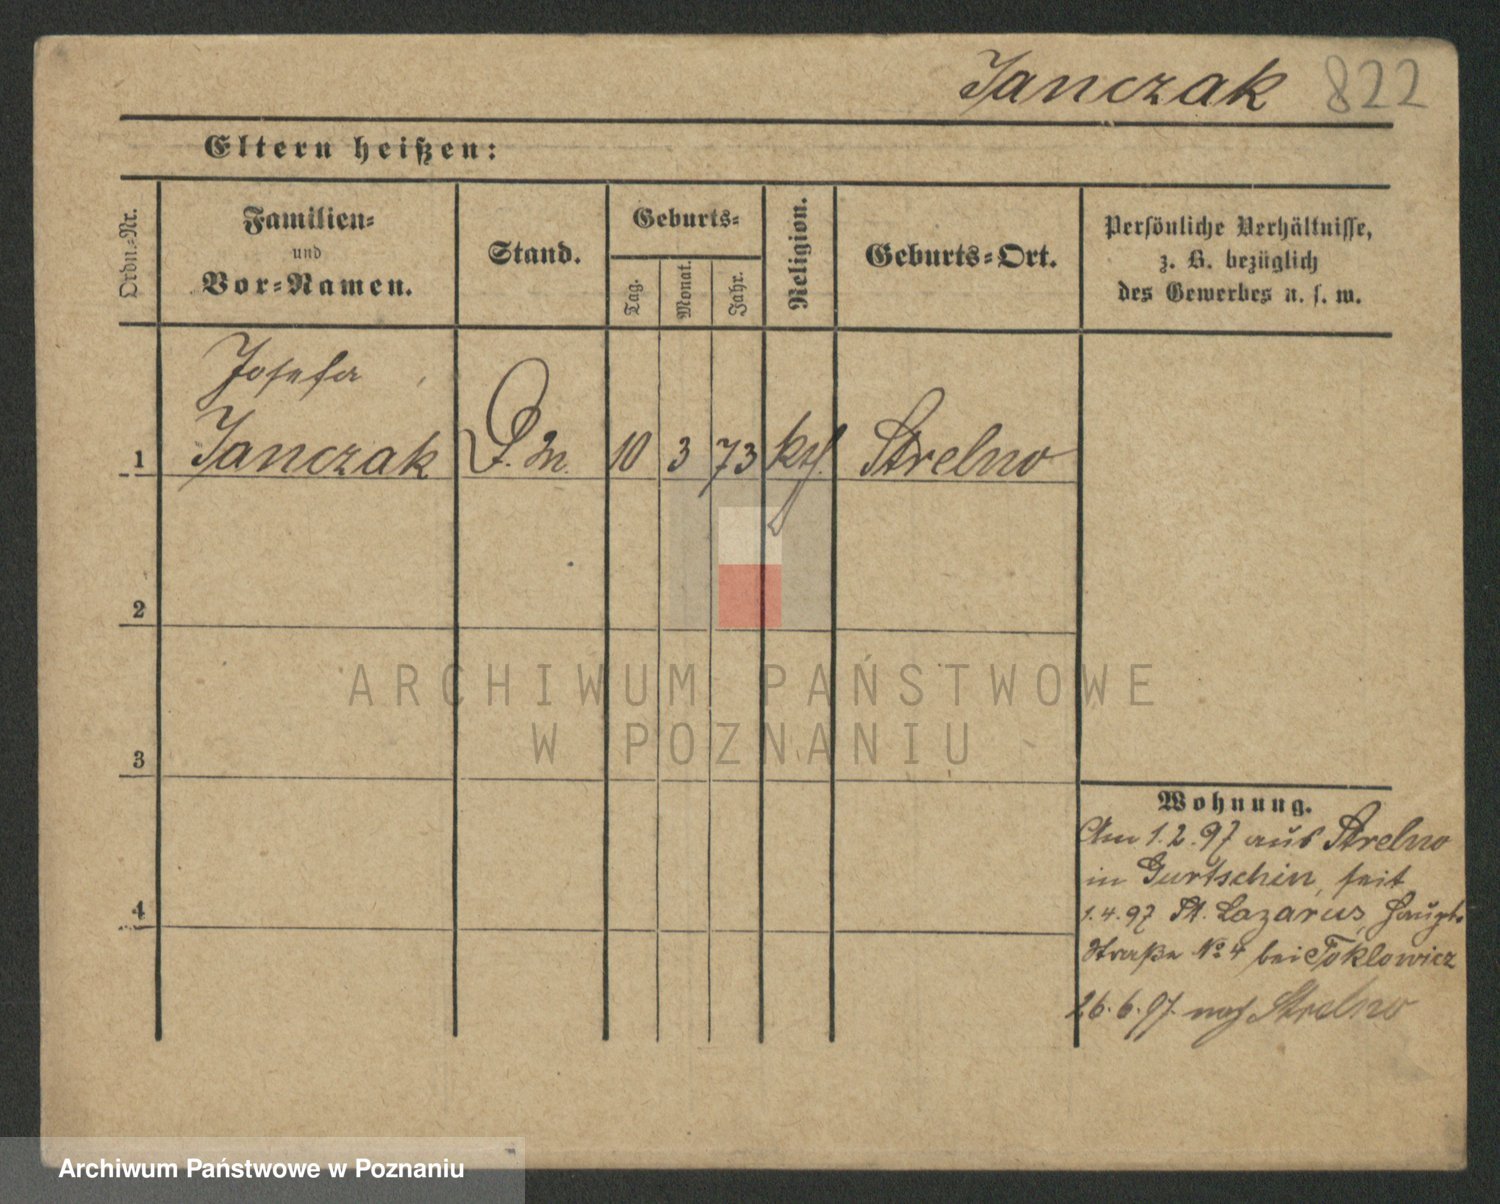 Janczak 822
Eltern heißen:
Ordn.-Nr.
Familien-
und
Vor-Namen.
Stand.
Geburts-
Tag.
Monat.
Jahr.
Religion.
Geburts-Ort.
Persönliche Verhältnisse,
z. B. bezüglich
des Gewerbes u. s. w.
Josefa
1 Janczak D. M. 10 3 73 kth. Strelno
2
3
4
Wohnung.
Am 1.2.97 aus Strelno
in Gurtschin, seit
1.4.97 St. Lazarus, Haupt-
Straße No 4 bei Toklowicz
26.6.97. nach Strelno
ARCHIWUM PAŃSTWOWE
W POZNANIU
Archiwum Państwowe w Poznaniu